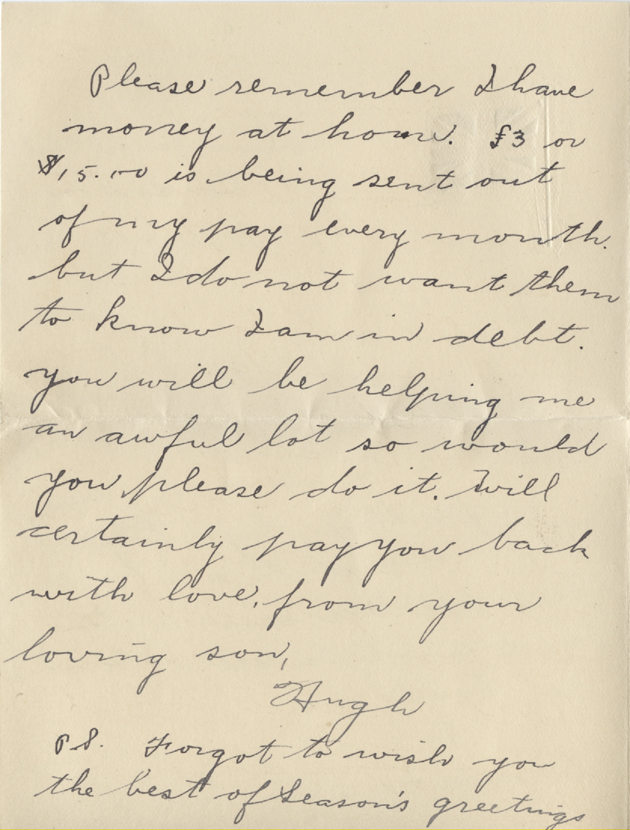 Please remember I have
money at home. £3 or
$15.00 is being sent out
of my pay every month.
but I do not want them
to know I am in debt.
you will be helping me
an awful lot so would
you please do it. I will
certainly pay you back
with love, from your
loving son,
Hugh
P.S. Forgot to wish you
the best of Season's greetings